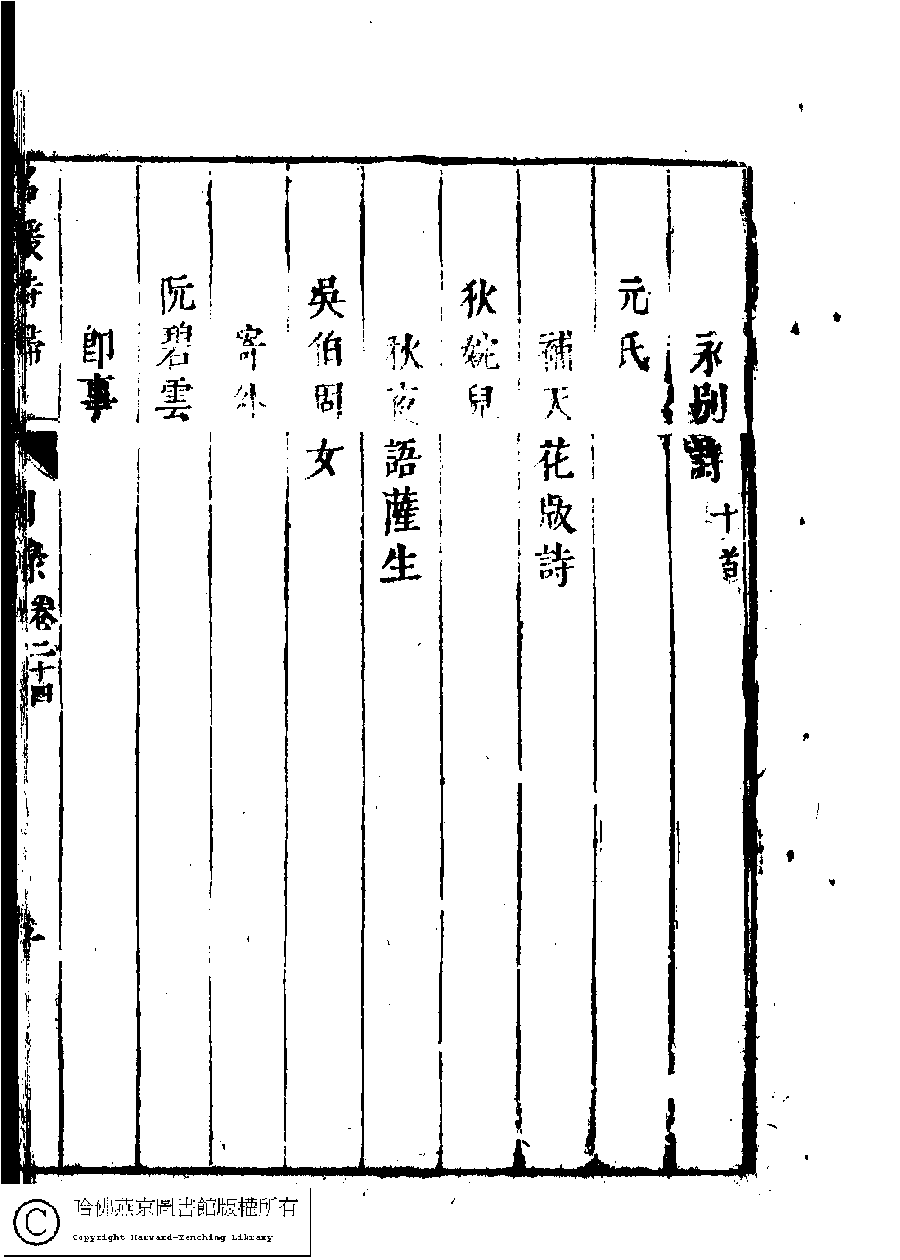 永別詩十首
元氏
補天花版詩
狄婉兒
秋夜語薩生
吳伯固女
寄外
阮碧雲
即事
名媛詩歸
目錄
卷二十四
哈佛燕京圖書館版權所有
Copyright Harvard-Yenching Library